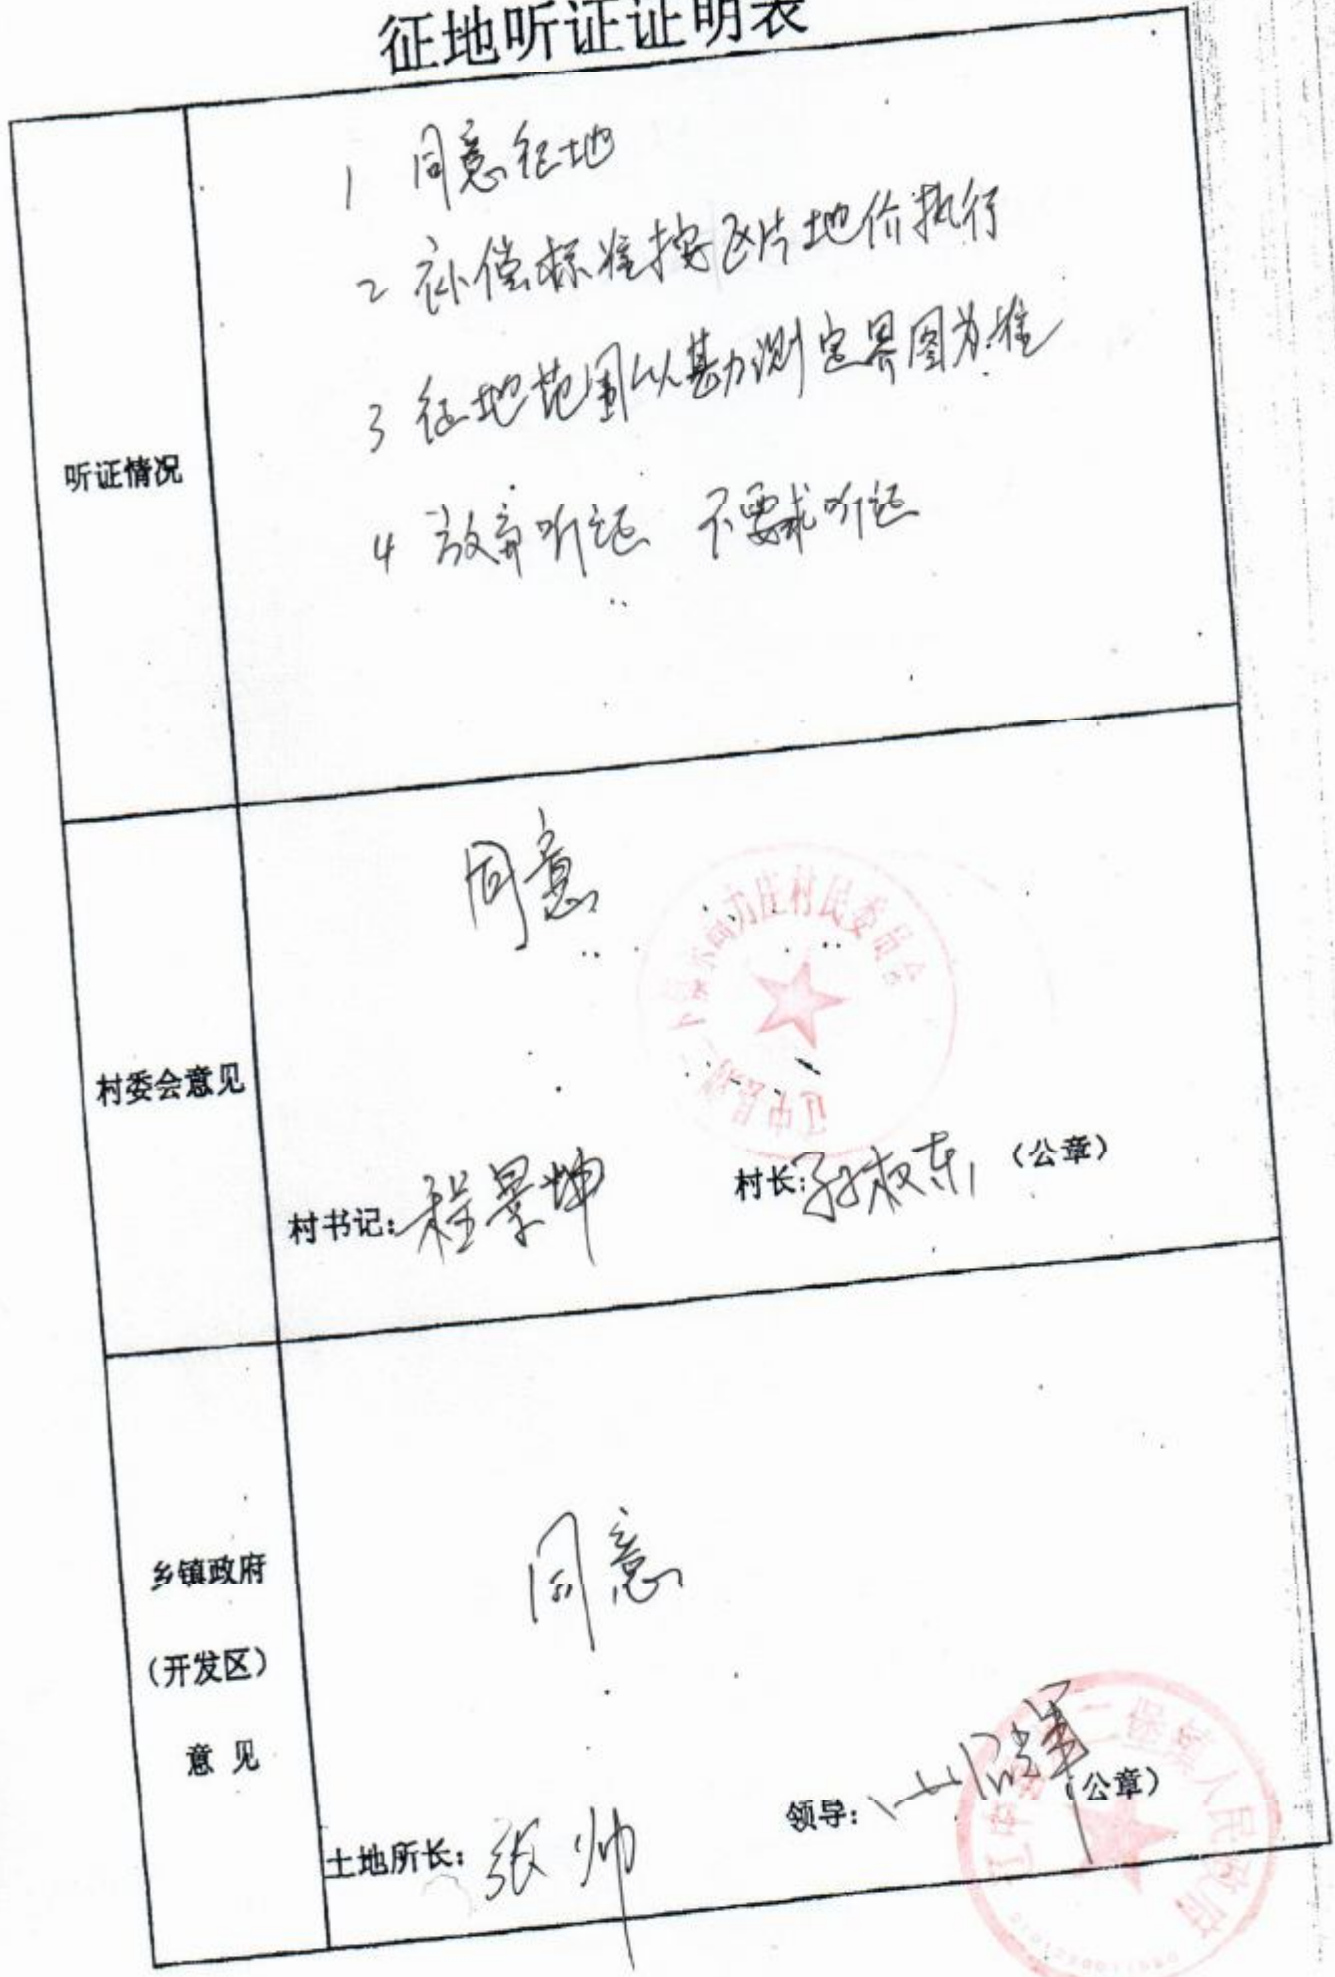 征地听证证明表
听证情况
1 同意征地
2 补偿标准按区片地价执行
3 征地范围以勘测定界图为准
4 放弃听证 不要求听证
村委会意见
同意
村民委员会
辽中县
村书记:程景坤
村长:孙权东 (公章)
乡镇政府
(开发区)
意 见
同意
土地所长:张帅
领导:
(公章)
二堡镇人民政府